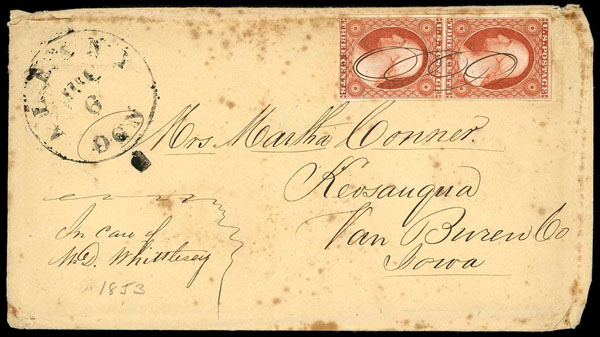 ALBANY
JUL
6
OGN
U.S. POSTAGE
THREE CENTS
U.S. POSTAGE
THREE CENTS
Mrs Martha Conner.
Keosauqua
Van Buren Co
Iowa
In care of
D. Whittlesey
1853